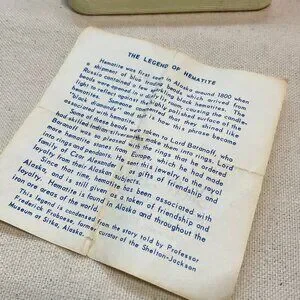 THE LEGEND OF HEMATITE
Hematite was first seen in Alaska around 1800 when
a shipment of blue trade beads, which arrived from
Russia contained a few sparkling black hematites. The
beads were opened in a dimly lit room, causing the candle
light to reflect against the highly polished surface of the
hematites. Someone commented that they shined like
"black diamonds" and that is how this phrase became
associated with hematite.
Some of these beads were taken to Lord Baranoff, who
had skilled Indian silversmiths make them into rings. Lord
Baranoff was so pleased with the rings that he ordered
more hematite stones from Europe, which he had made
into rings and pendants. He sent this jewelry to the royal
family of Czar Alexander I, as gifts of friendship and
loyalty from his Alaskan subjects.
Since that time hematite has been associated with
Alaska, and is still given as a token of friendship and
loyalty. Hematite is found in Alaska and throughout the
iron areas of the world.
This legend is condensed from the story told by Professor
Frederick Frobaese, former curator of the Shelton-Jackson
Museum at Sitka, Alaska.